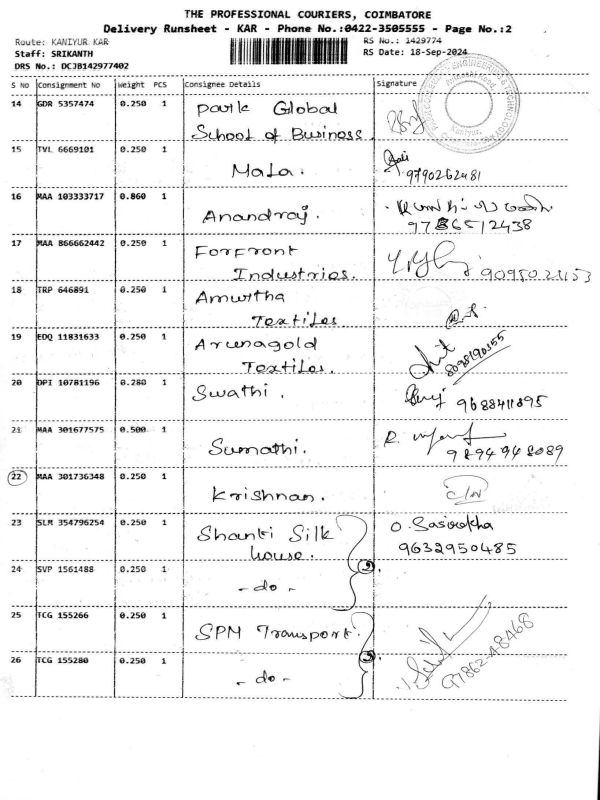 THE PROFESSIONAL COURIERS, COIMBATORE
Delivery Runsheet - KAR - Phone No.:0422-3505555 - Page No.:2
Route: KANIYUR KAR
RS No.: 1429774
Staff: SRIKANTH
RS Date: 18-Sep-2024
DRS No.: DCJB142977402
S No Consignment No Weight PCS Consignee Details Signature
14 GDR 5357474 0.250 1 Park Global
School of Business
15 TVL 6669101 0.250 1 Mala.
9790262481
16 MAA 103333717 0.860 1 Anandraj.
9786512438
17 MAA 866662442 0.250 1 Forfront
Industries.
18 TRP 646891 0.250 1 Amurtha
Textiles
19 EDQ 11831633 0.250 1 Arunagold
Textiles.
8098190355
20 OPI 10781196 0.280 1 Swathi.
9688411895
21 MAA 301677575 0.500 1 Sumathi.
9894948089
22 MAA 301736348 0.250 1 Krishnan.
23 SLM 354796254 0.250 1 Shanti Silk
house.
O. Sasirekha
9632950485
24 SVP 1561488 0.250 1 - do -
2
25 TCG 155266 0.250 1 SPM Transport
26 TCG 155280 0.250 1 - do -
2
97862-48468